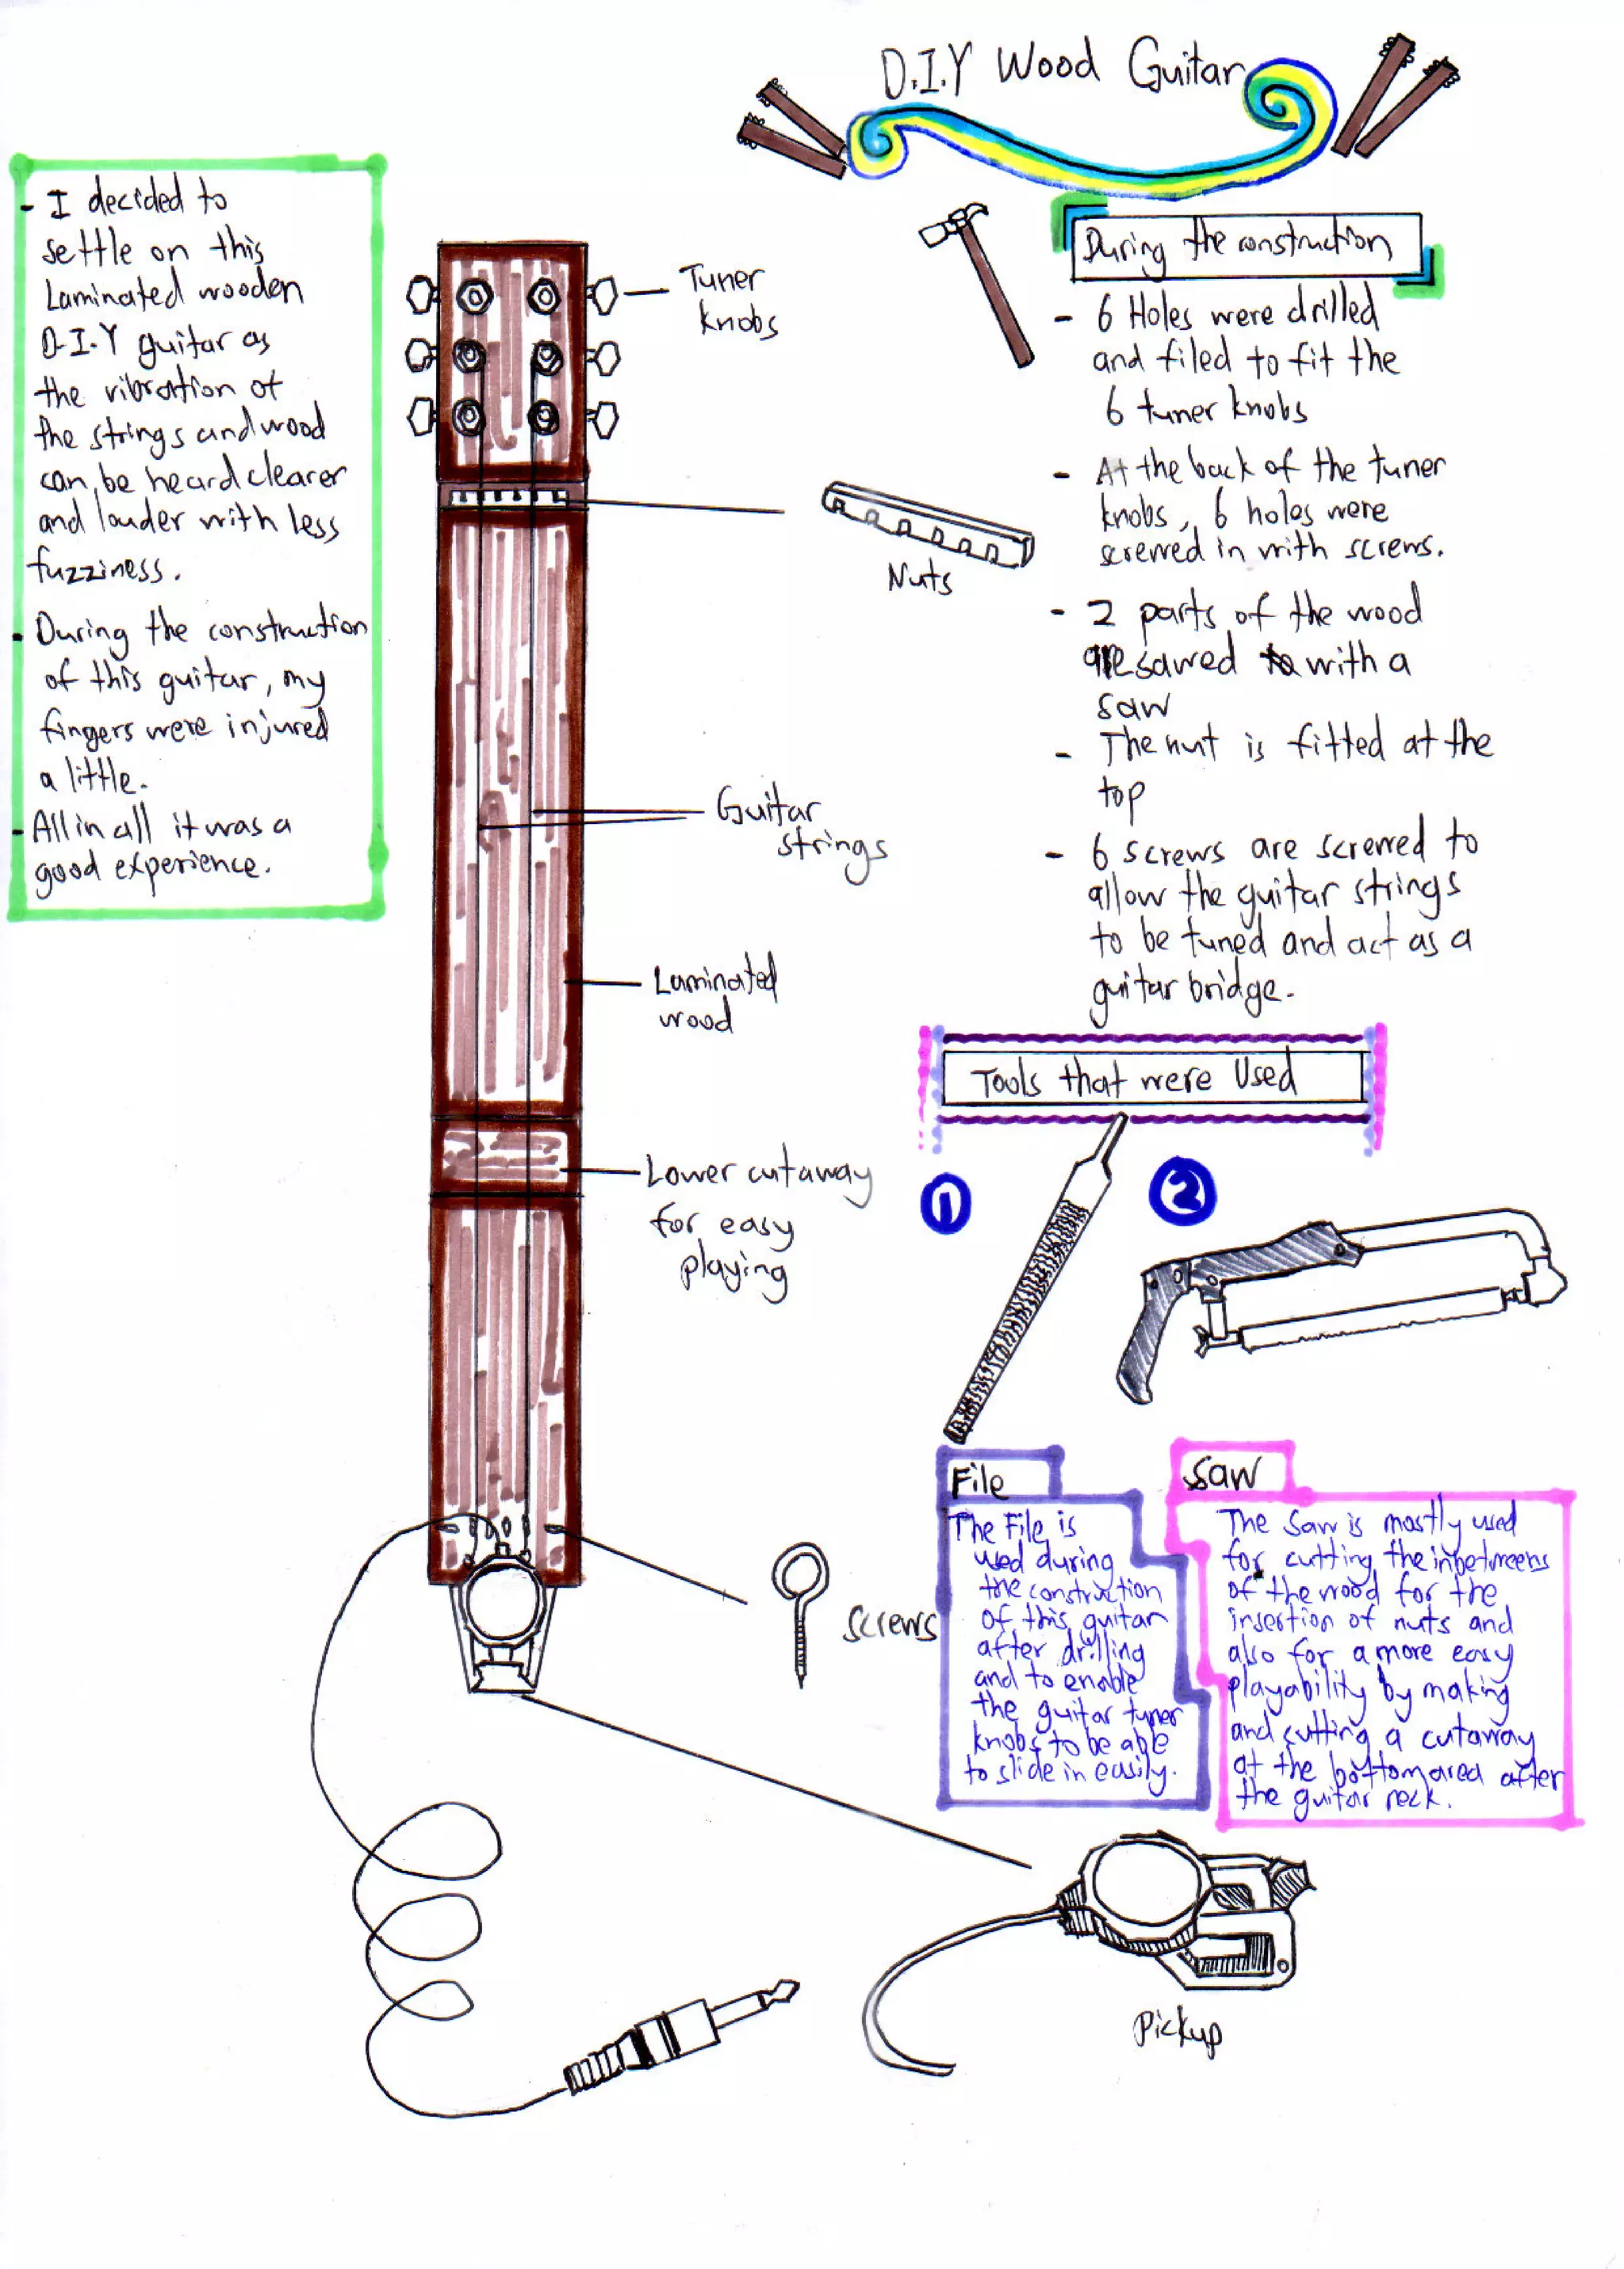 D.I.Y Wood Guitar
- I decided to
settle on this
Laminated wooden
D.I.Y guitar as
the vibration of
the strings and wood
can be heard clearer
and louder with less
fuzziness.
- During the construction
of this guitar, my
fingers were injured
a little.
- All in all it was a
good experience.
Tuner
knobs
Nuts
Guitar
strings
Laminated
wood
Lower cutaway
for easy
playing
Screws
Pickup
During the construction
- 6 Holes were drilled
and filed to fit the
6 tuner knobs
- At the back of the tuner
knobs, 6 holes were
screwed in with screws.
- 2 parts of the wood
are sawed with a
saw
- The nut is fitted at the
top
- 6 screws are screwed to
allow the guitar strings
to be tuned and act as a
guitar bridge.
Tools that were Used
1
2
File
The File is
used during
the construction
of this guitar
after drilling
and to enable
the guitar tuner
knobs to be able
to slide in easily.
Saw
The Saw is mostly used
for cutting the inbetweens
of the wood for the
insertion of nuts and
also for a more easy
playability by making
and cutting a cutaway
at the bottom area after
the guitar neck.